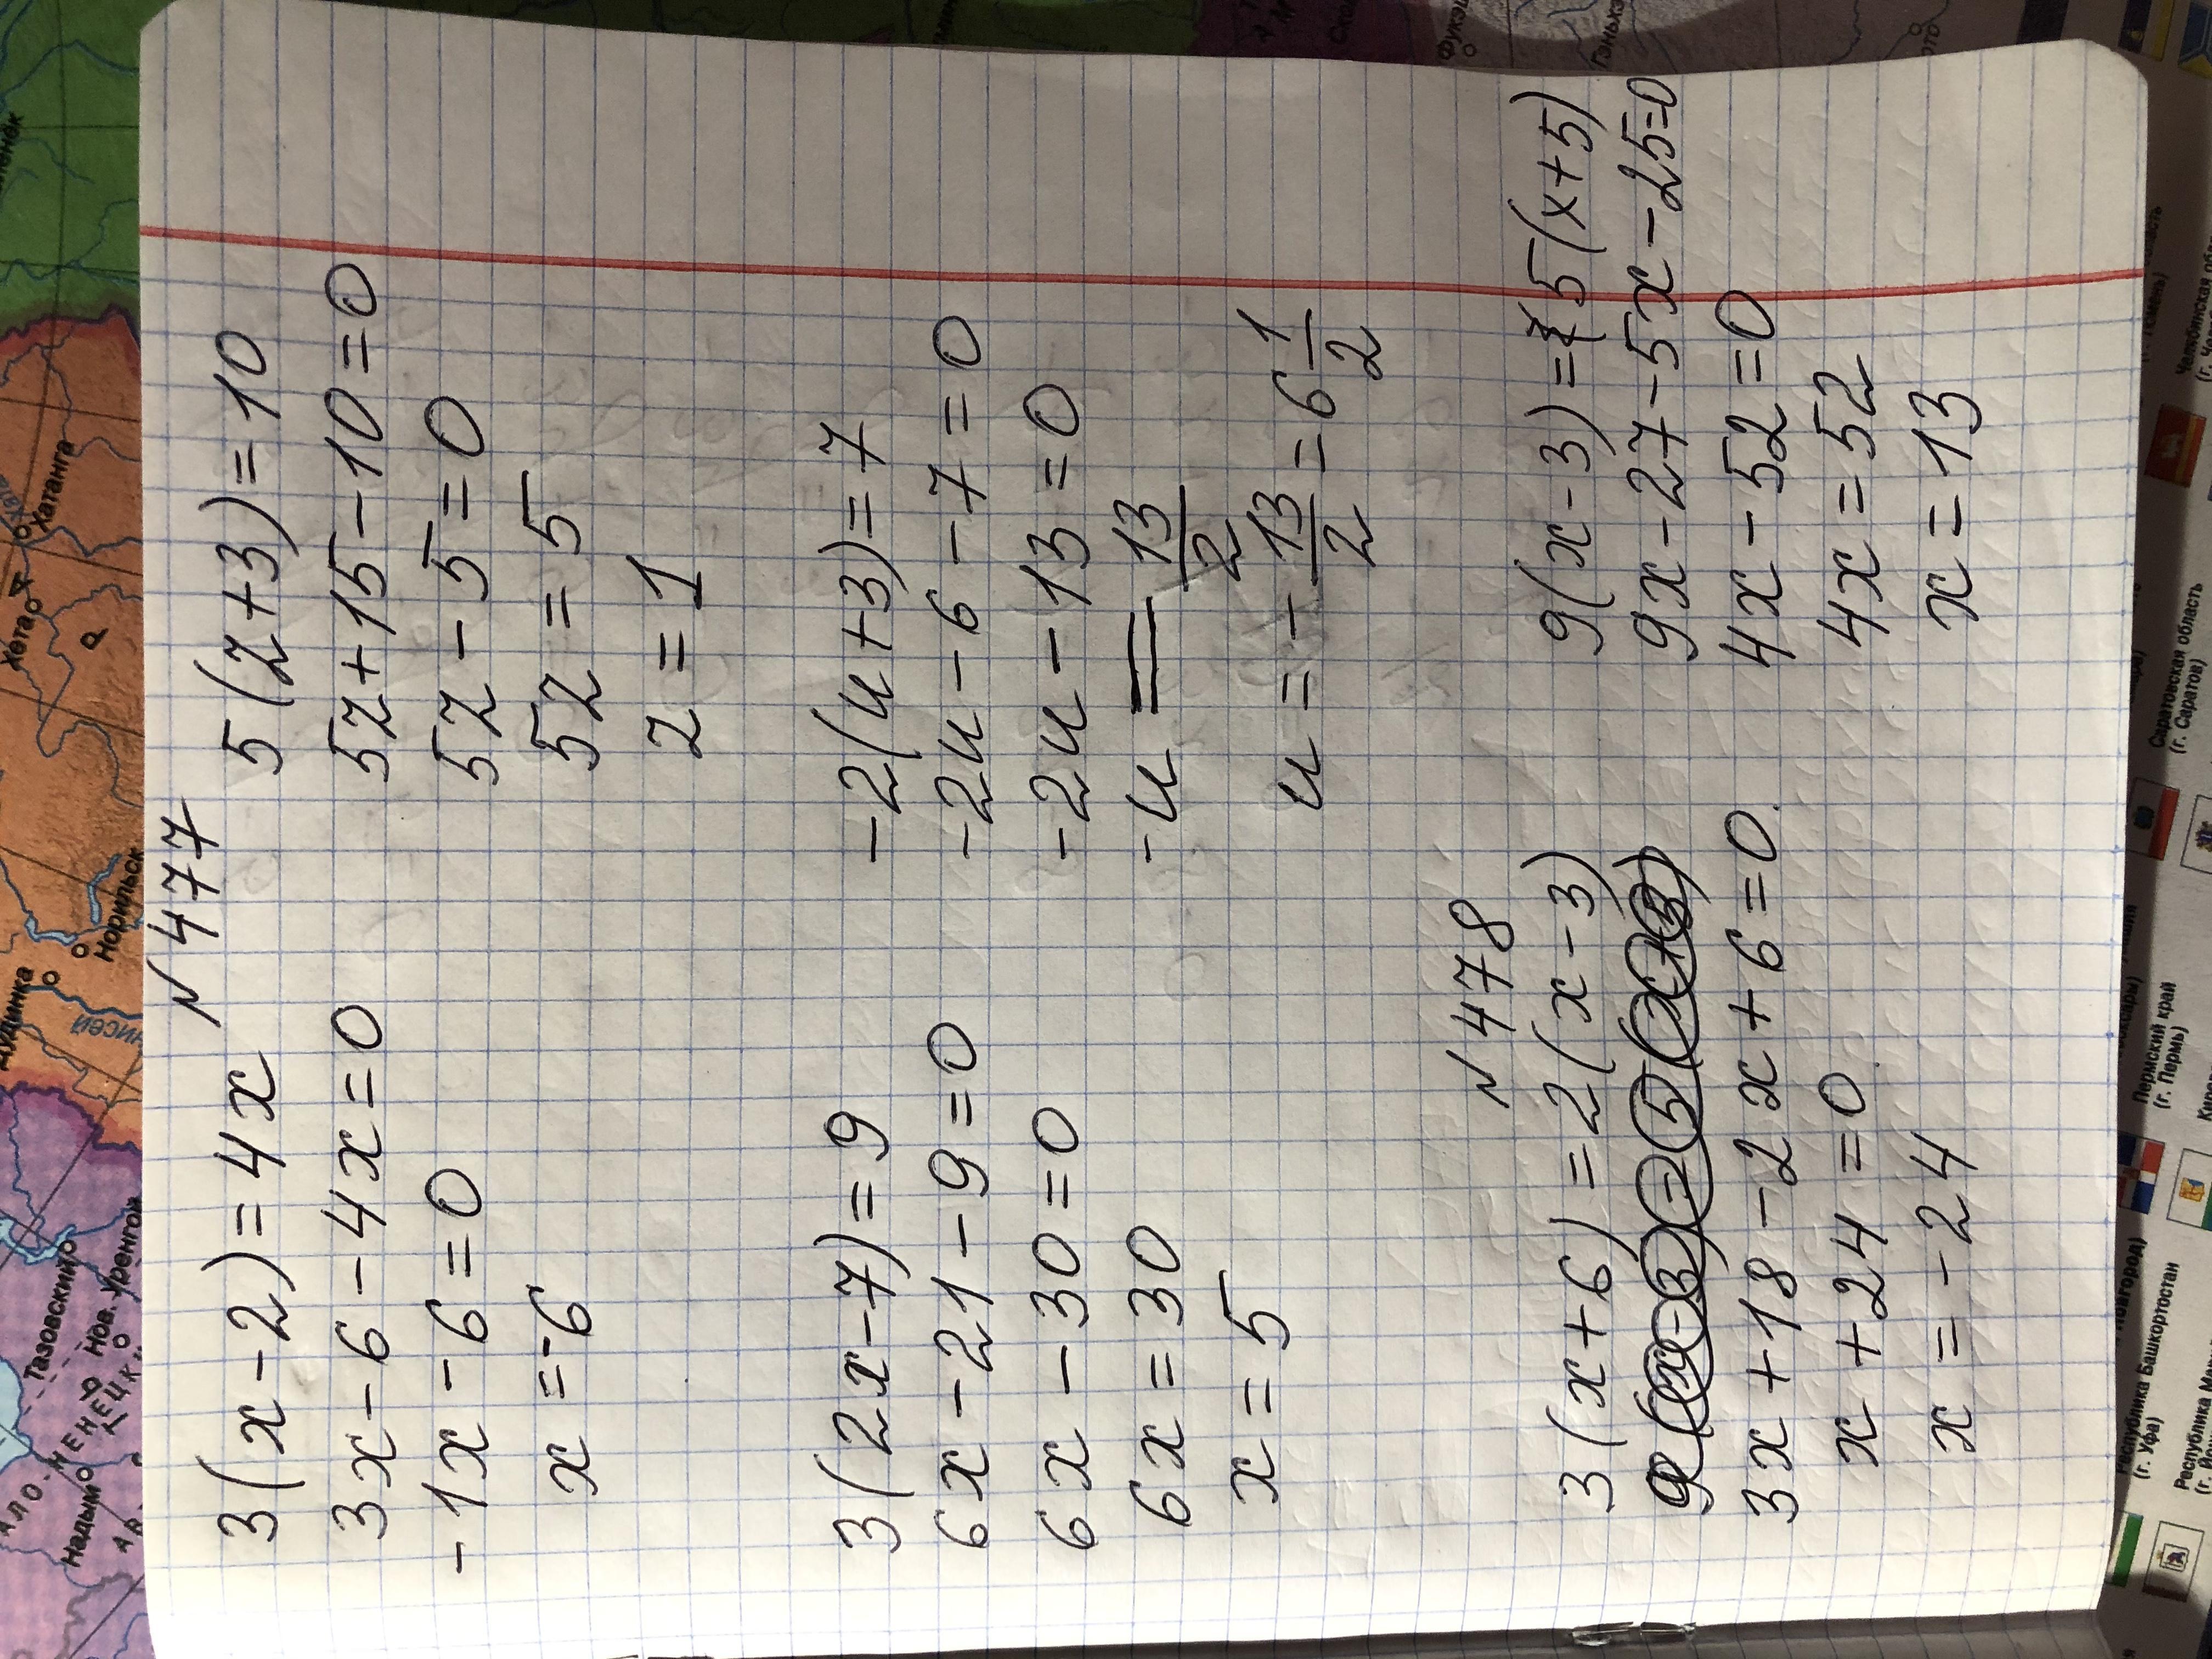 N 477
3(x-2)=4x
3x-6-4x=0
-1x-6=0
x=-6
5(z+3)=10
5z+15-10=0
5z-5=0
5z=5
z=1
3(2x-7)=9
6x-21-9=0
6x-30=0
6x=30
x=5
-2(и+3)=7
-2и-6-7=0
-2и-13=0
-и=13/2
и=-13/2=6 1/2
N 478
3(x+6)=2(x-3)
3x+18-2x+6=0
x+24=0
x=-24
9(x-3)=5(x+5)
9x-27-5x-25=0
4x-52=0
4x=52
x=13
Хатанга
Хета
Норильск
Дудинка
Тазовский
Нов. Уренгой
Надым
Саратовская область
(г. Саратов)
Пермский край
(г. Пермь)
Республика Башкортостан
(г. Уфа)